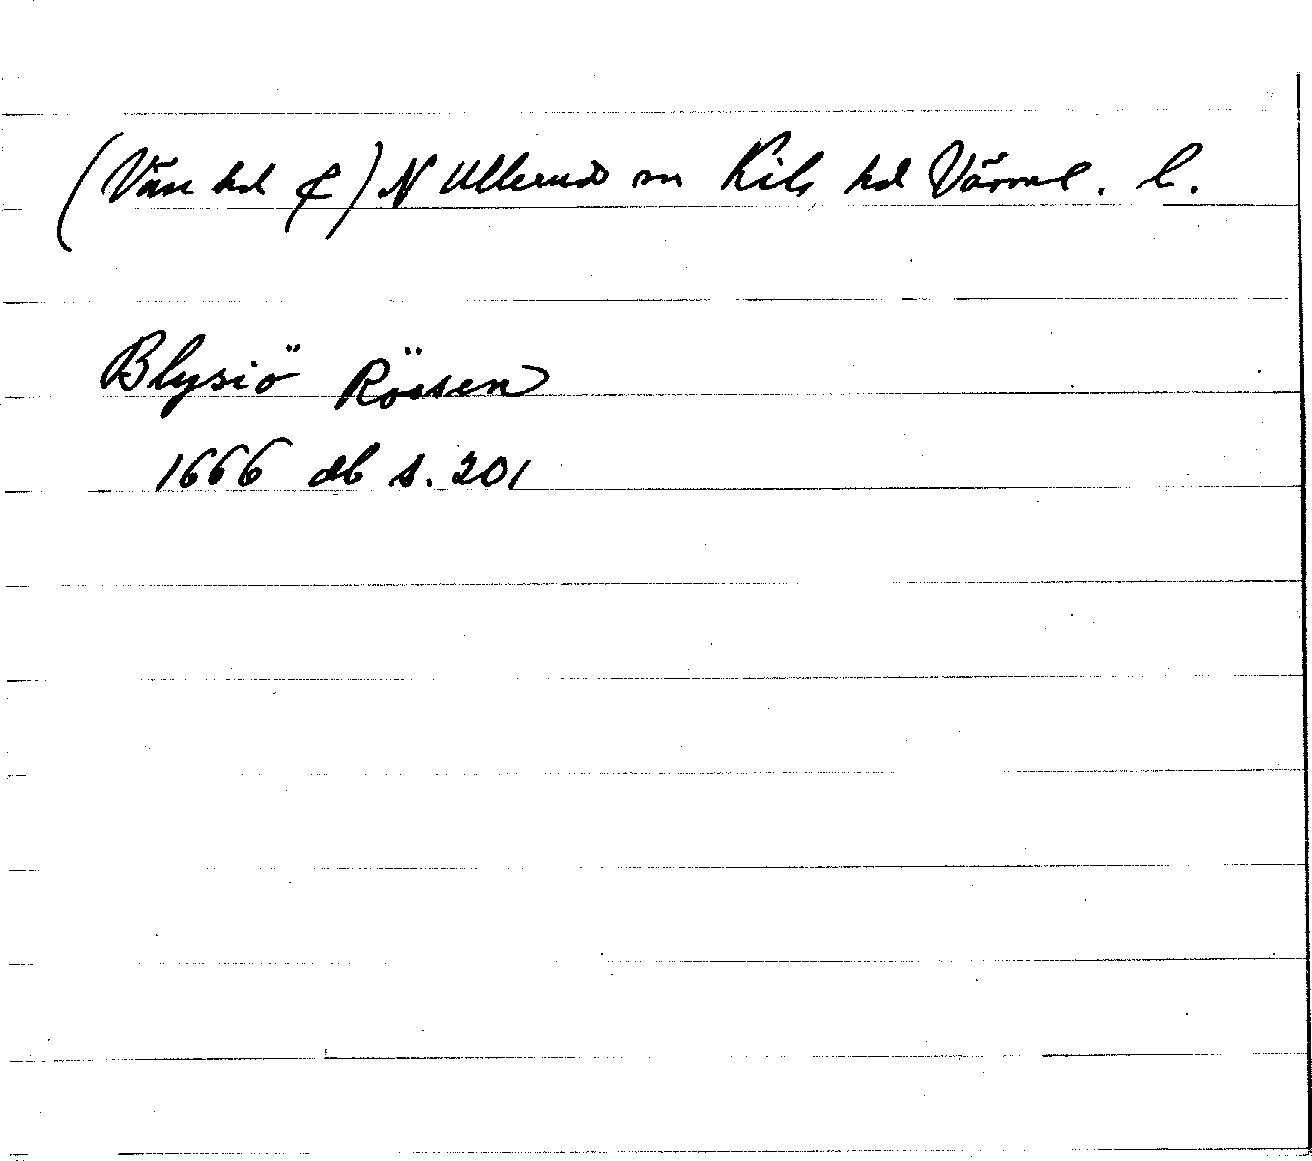 (Väse hd ȼ) N Ullerud sn Kils hd Värml. l.
Blysiö Röesen
1666 db s. 201